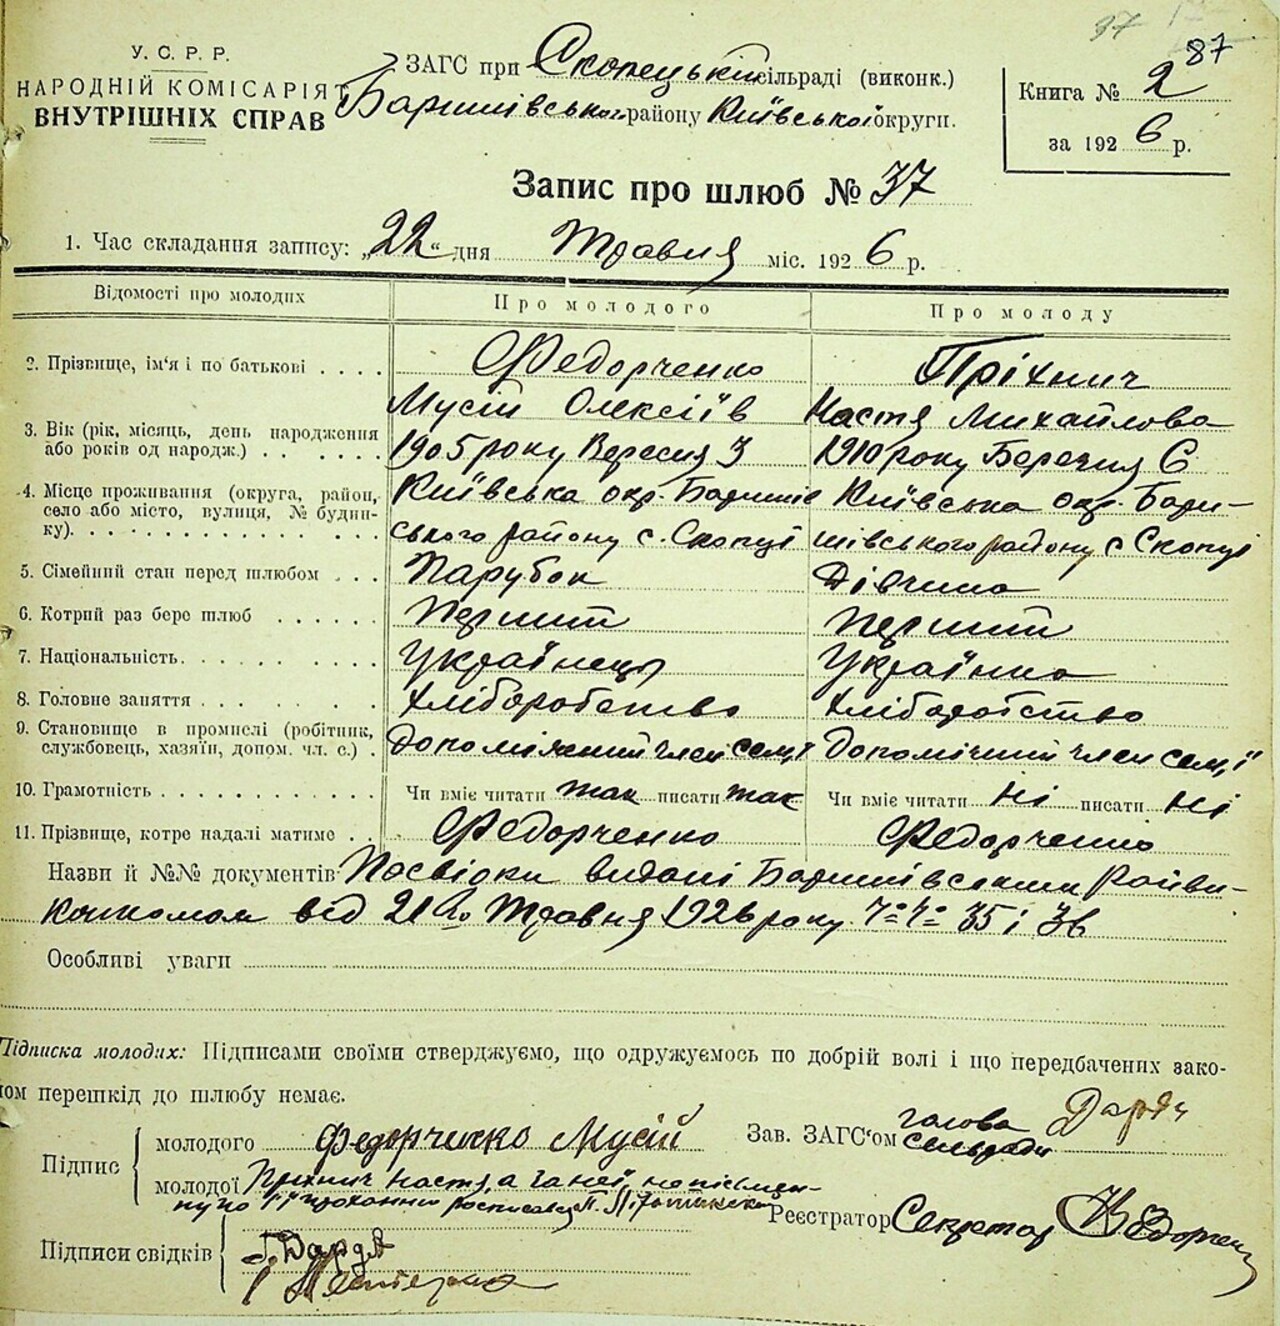 37
87
У. С. Р. Р.
НАРОДНІЙ КОМІСАРІЯТ
ВНУТРІШНІХ СПРАВ
ЗАГС при Скопецькій сільраді (виконк.)
Баришівського району Київської округи.
Книга № 2
за 1926 р.
Запис про шлюб № 37
1. Час складання запису: „22“ дня Травня міс. 1926 р.
Відомості про молодих Про молодого Про молоду
2. Прізвище, ім'я і по батькові . . . . Федорченко Пріхнич
Мусій Олексіїв Настя Михайлова
3. Вік (рік, місяць, день народження
або років од народж.) . . . . . . 1905 року Вересня 3 1910 року Березня 6
4. Місце проживання (округа, район,
село або місто, вулиця, № будин-
ку). . . . . . . . . . . . . .
Київська окр. Баришів Київська окр. Бари-
ського району с. Скопці шівського району с Скопці
5. Сімейний стан перед шлюбом . . . Парубок Дівчина
6. Котрий раз бере шлюб . . . . . . Перший Перший
7. Національність. . . . . . . . . . Українець Українка
8. Головне заняття . . . . . . . . Хліборобство Хліборобство
9. Становище в промислі (робітник,
службовець, хазяїн, допом. чл. с.) . Допоміжний член семї Допомічний член семї
10. Грамотність . . . . . . . . . . . Чи вміє читати так писати так Чи вміє читати Ні писати Ні
11. Прізвище, котре надалі матиме . . Федорченко Федорченко
Назви й №№ документів Посвідки видані Баришівським Райви-
конкомом від 21го Травня 1926 року 35 і 36
Особливі уваги
Підписка молодих: Підписами своїми стверджуємо, що одружуємось по добрій волі і що передбачених зако-
ном перешкід до шлюбу немає.
Підпис
молодого Федорченко Мусій
молодої Пріхнич Настя, а за неї, не письмен-
ну по її проханню росписався П.
Зав. ЗАГС'ом голова
сельради
Реєстратор Секретар Федорченко
Підписи свідків